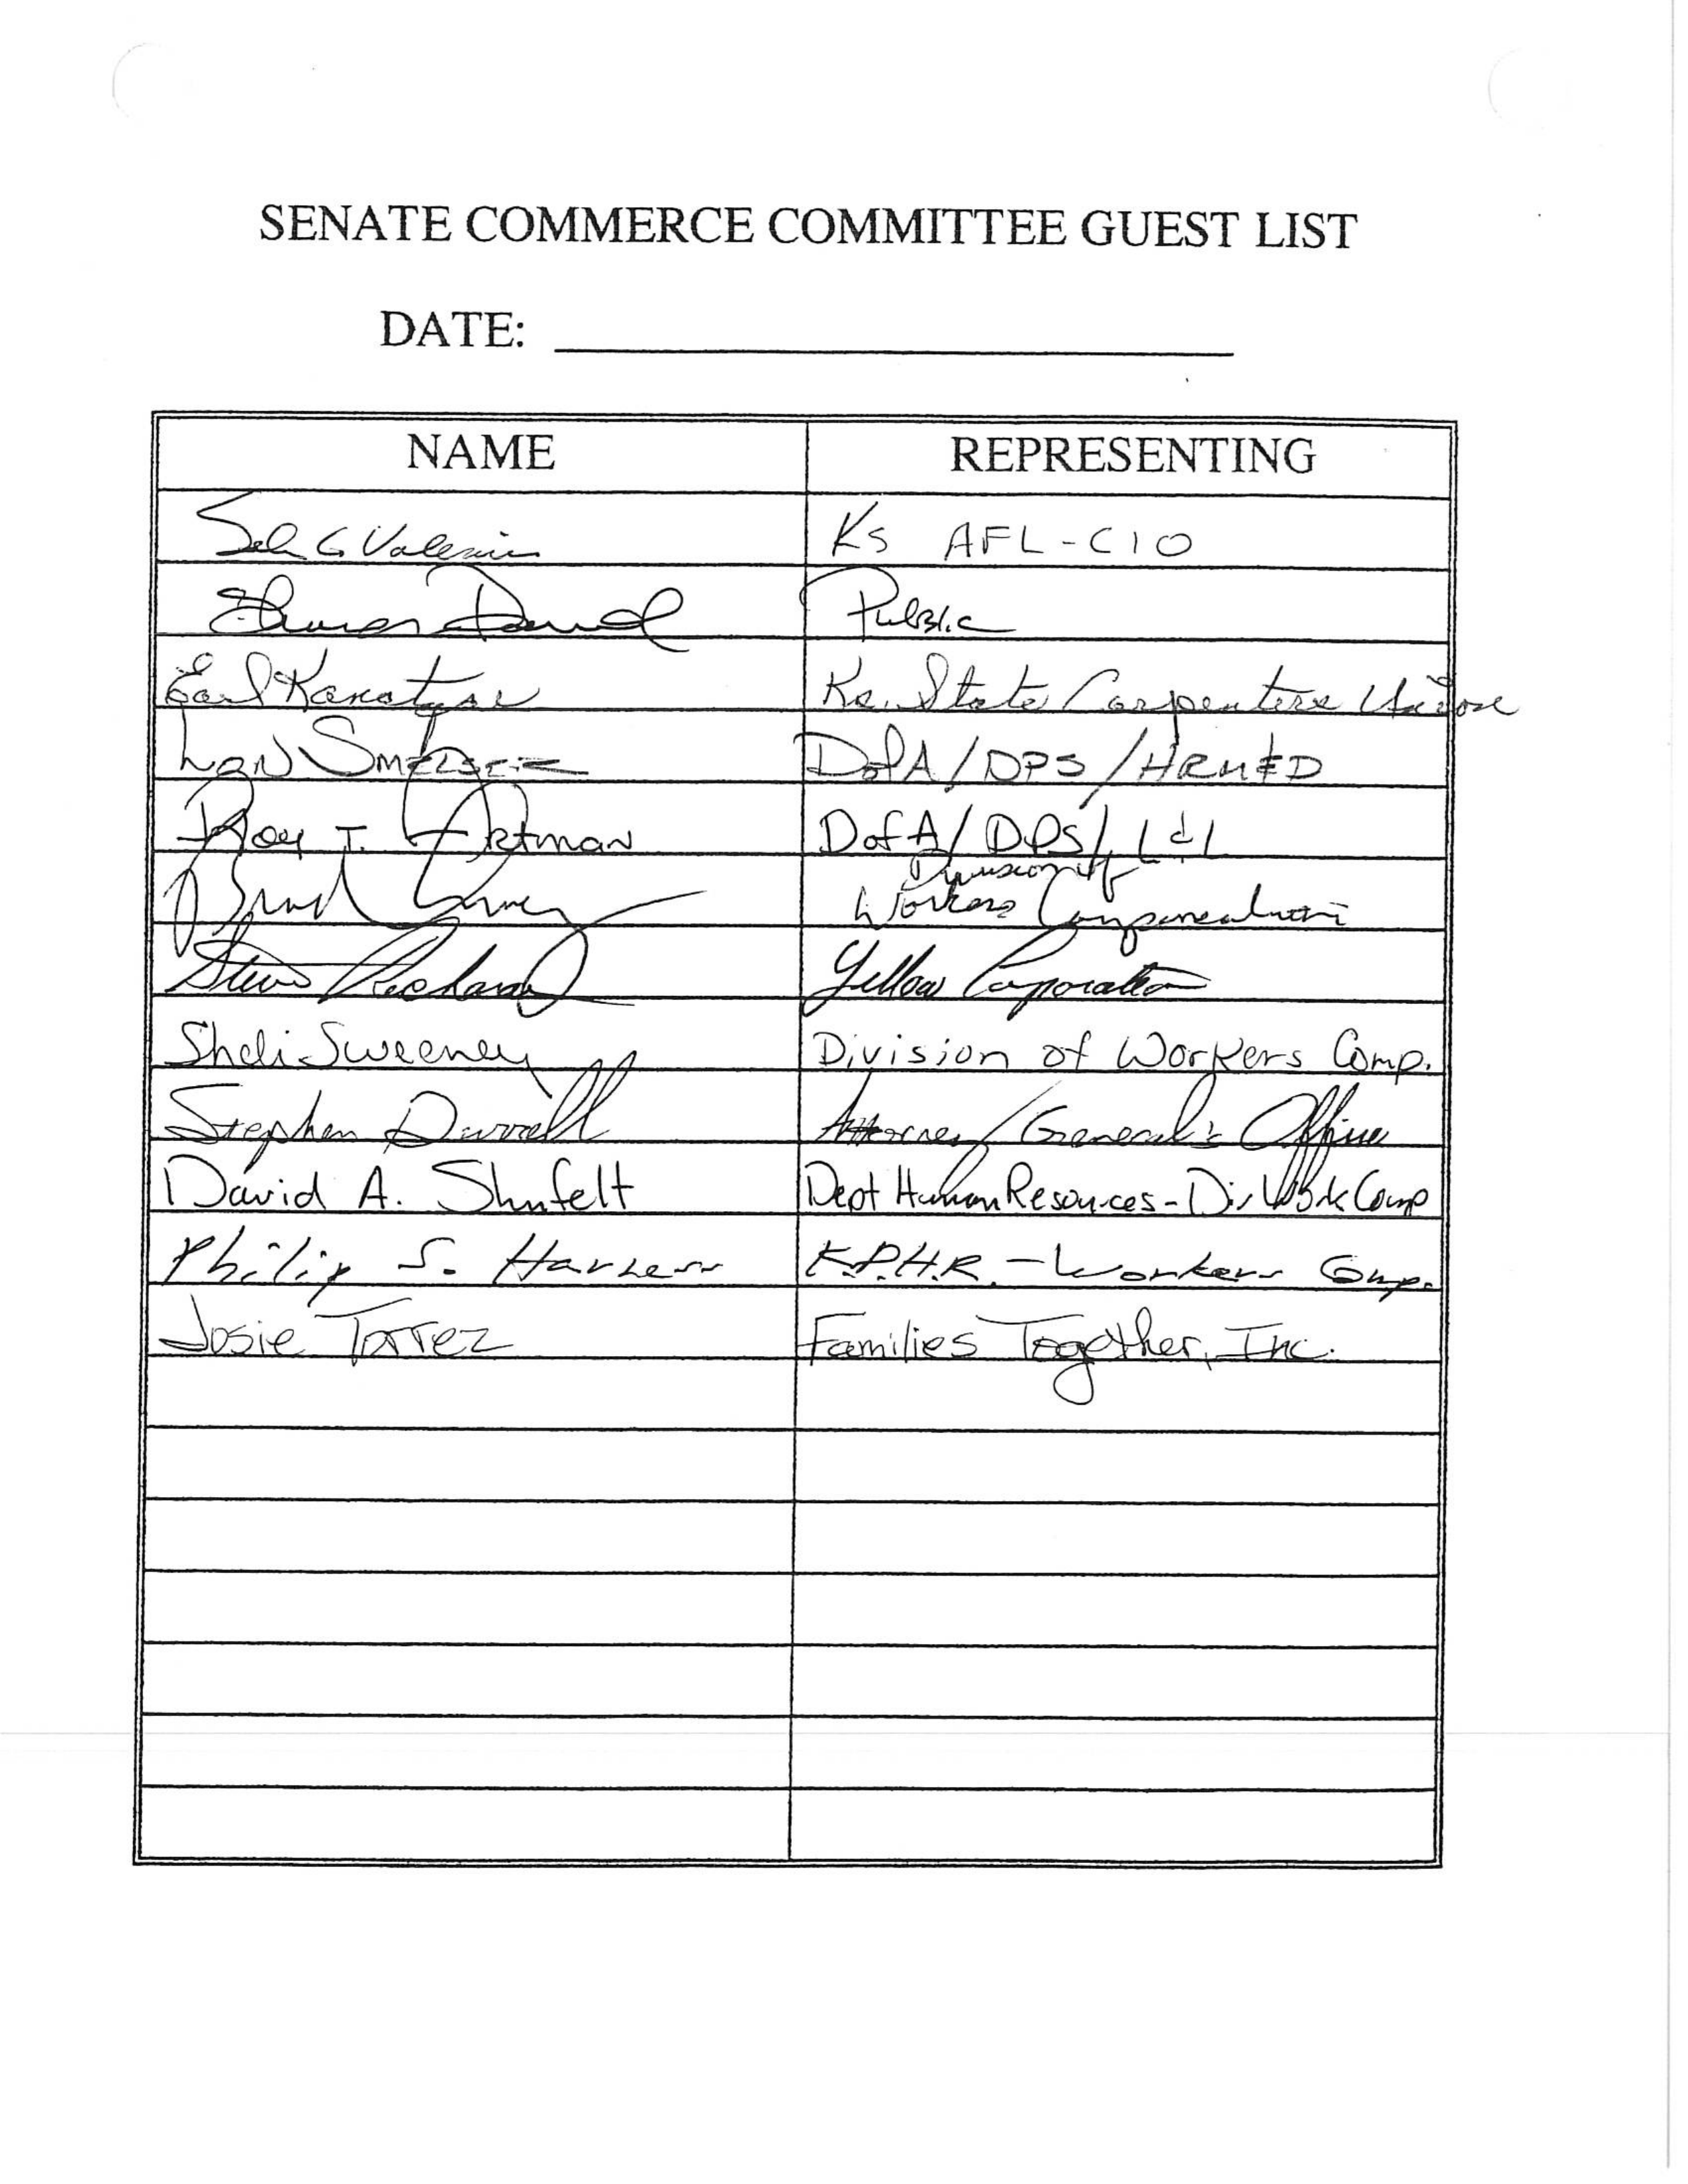 SENATE COMMERCE COMMITTEE GUEST LIST
DATE:
NAME REPRESENTING
Ks AFL-CIO
Public
Earl Ks. State Carpenters Union
DofA/DPS/
Roy T. Artman DofA/DPS/L&I
Brad Division of
Workers Compensation
Steve Richards Yellow Corporation
Sheli Sweeney Division of Workers Comp.
Stephen Durrell Attorney General's Office
David A. Shufelt Dept Human Resources - Div Work Comp
Philip S. Harness K.D.H.R. - Workers Comp.
Josie Torrez Families Together, Inc.